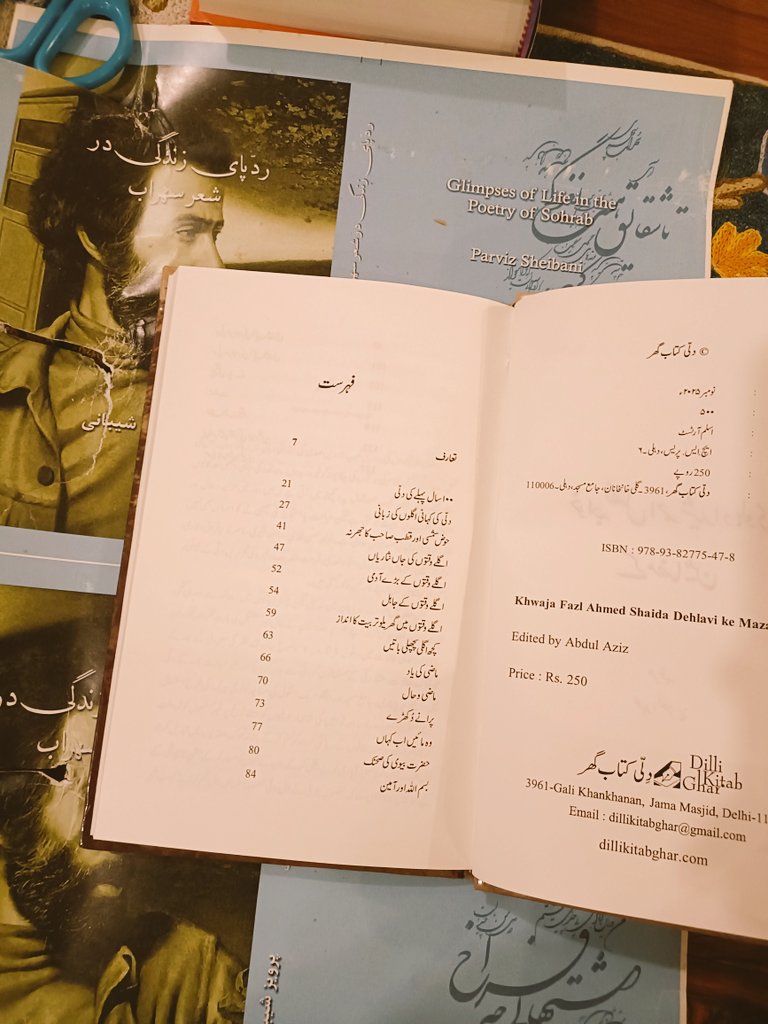 ردّپای زندگی در
شعر سهراب
شیبانی
Glimpses of Life in the
Poetry of Sohrab
Parviz Sheibani
فہرست
تعارف 7
۱۰۰ سال پہلے کی دلّی 21
دلّی کی کہانی اگلوں کی زبانی 27
حوض شمسی اور قطب صاحب کا جھرنہ 41
اگلے وقتوں کی جاں نثاریاں 47
اگلے وقتوں کے بڑے آدمی 52
اگلے وقتوں کے جاہل 54
اگلے وقتوں میں گھریلو تربیت کا انداز 59
کچھ اگلی پچھلی باتیں 63
ماضی کی یاد 66
ماضی و حال 70
پرانے دُکھڑے 73
وہ مائیں اب کہاں 77
حضرت بیوی کی صحنک 80
بسم اللہ اور آمین 84
© دلّی کتاب گھر
: نومبر ۲۰۲۵ء
: ۵۰۰
: اسلم آرٹسٹ
: ایچ ایس۔ پریس، دہلی۔۶
: 250 روپے
: دلّی کتاب گھر، 3961۔گلی خانخانان، جامع مسجد، دہلی۔110006
ISBN : 978-93-82775-47-8
Khwaja Fazl Ahmed Shaida Dehlavi ke Maza
Edited by Abdul Aziz
Price : Rs. 250
دِلّی کتاب گھر
Dilli
Kitab
Ghar
3961-Gali Khankhanan, Jama Masjid, Delhi-11
Email : dillikitabghar@gmail.com
dillikitabghar.com
زندگی در
شعر سهراب
پرویز شیب